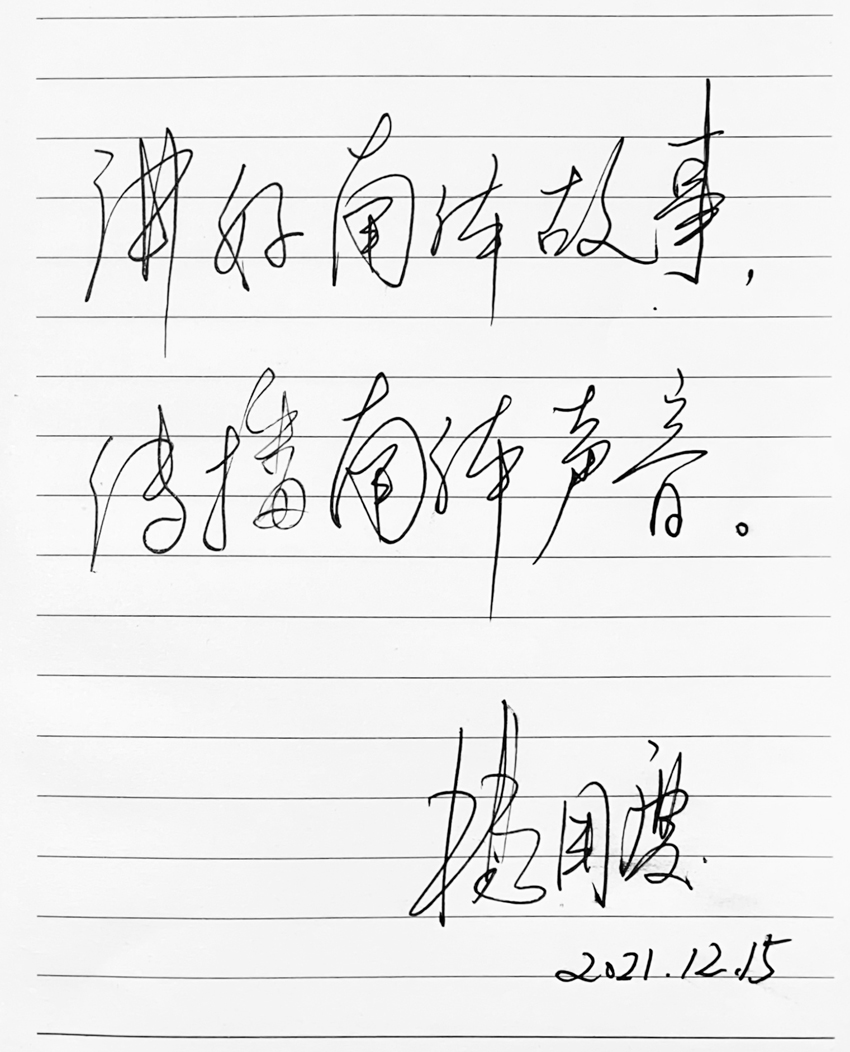 讲好南体故事,
传播南体声音。
2021.12.15